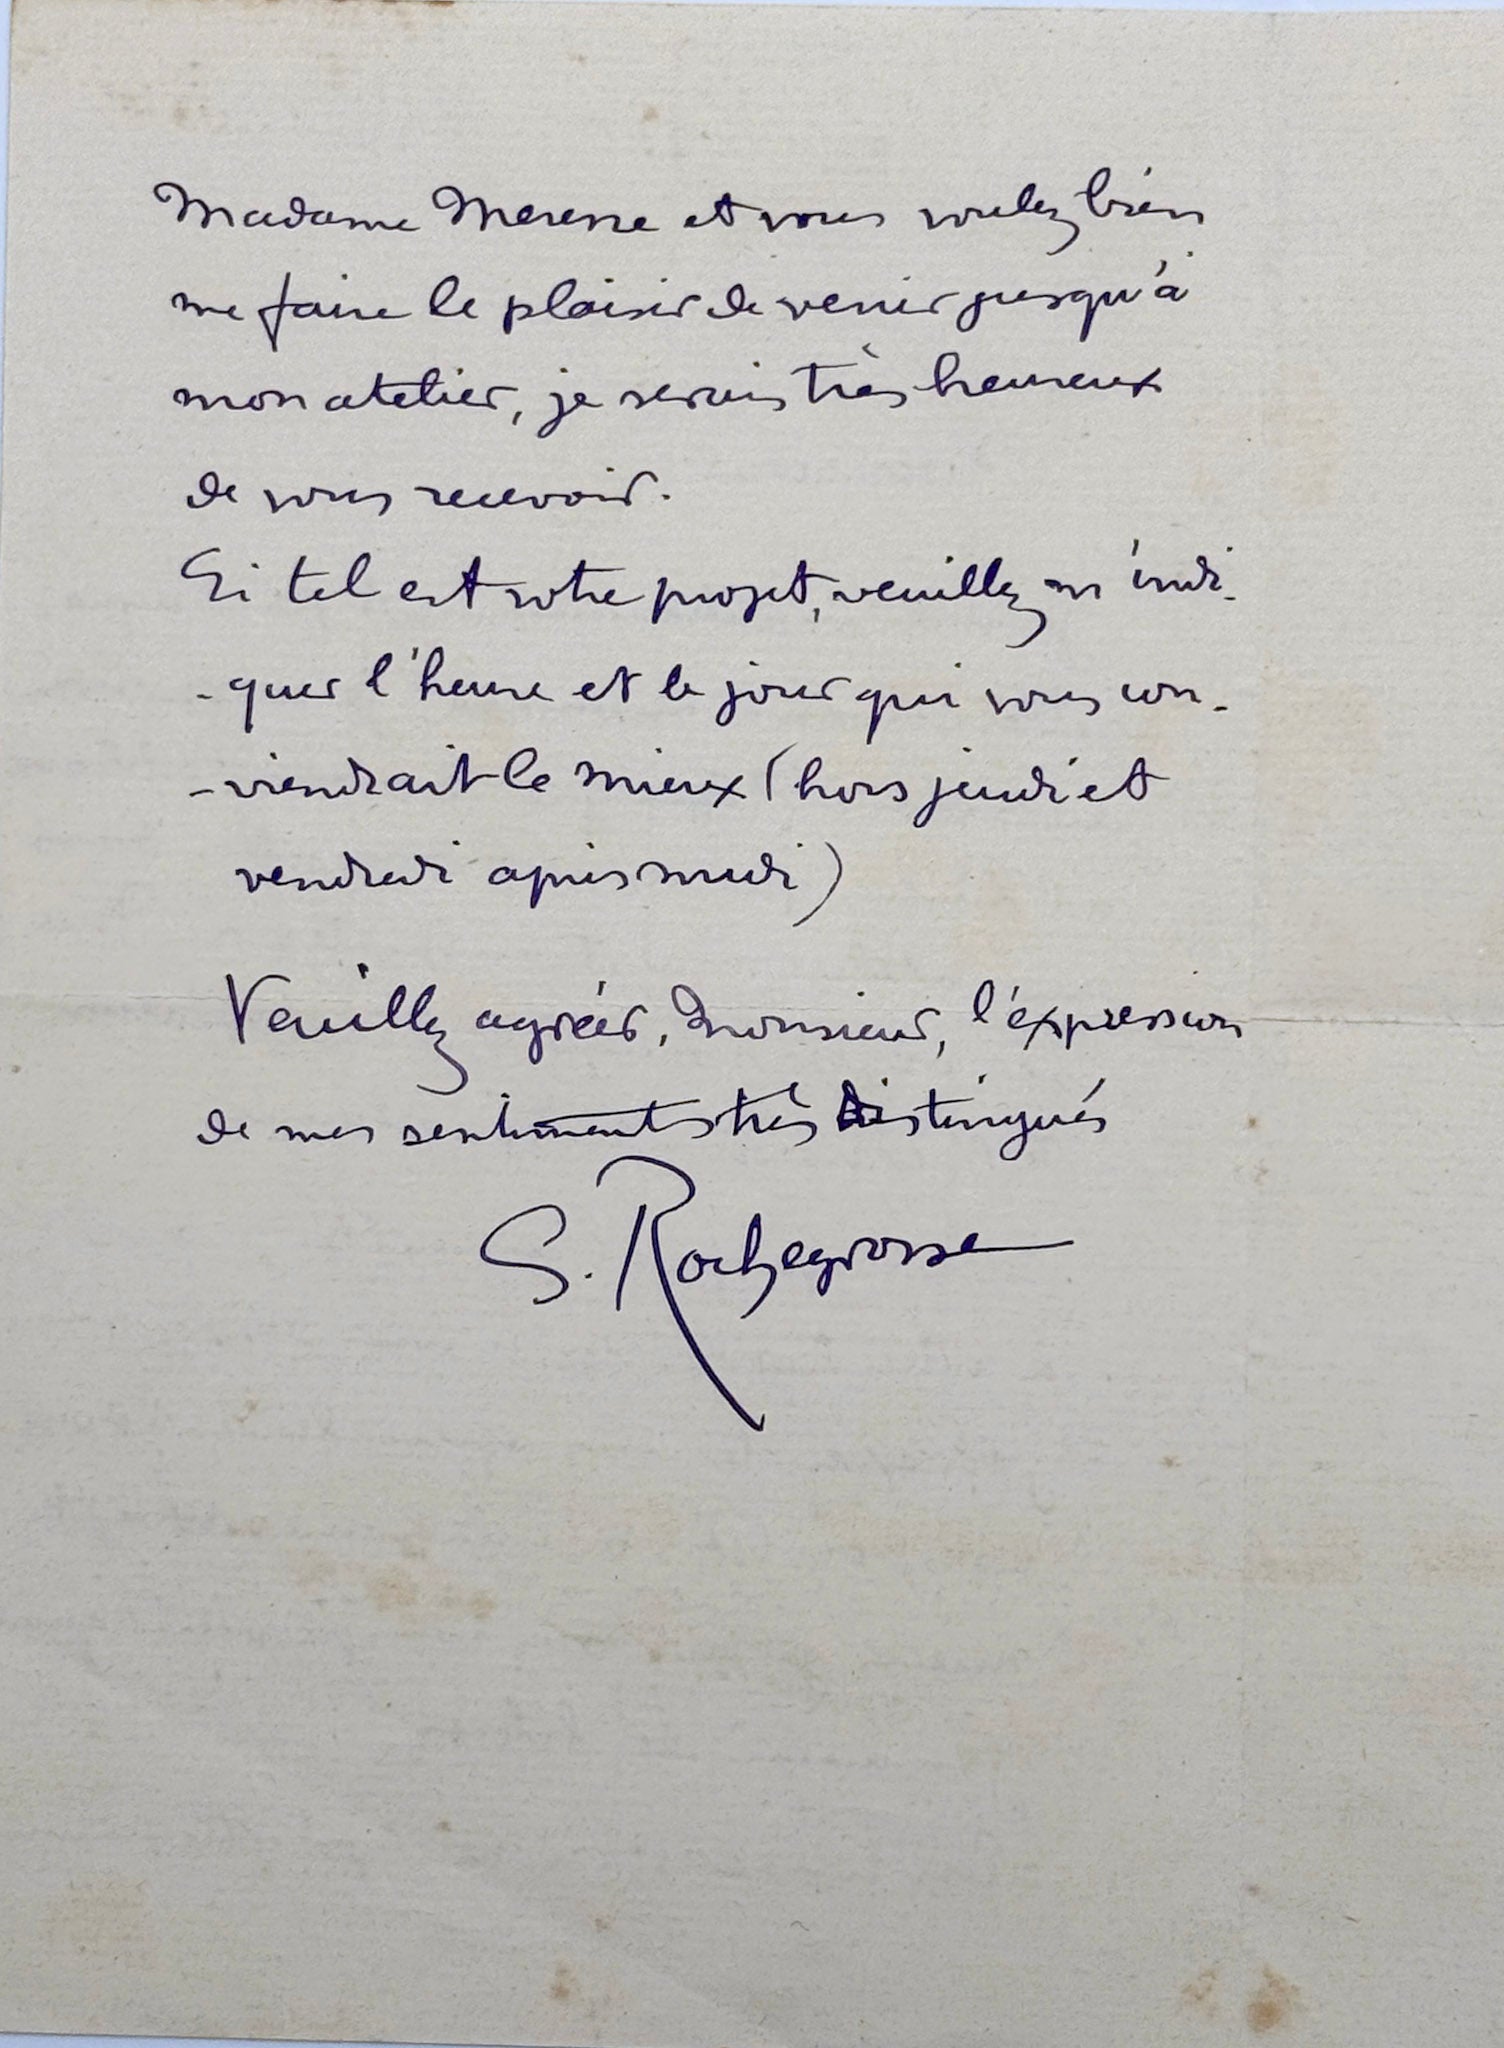 Madame Meresse et vous voulez bien
me faire le plaisir de venir jusqu'à
mon atelier, je serais très heureux
de vous recevoir.
Si tel est votre projet, veuillez m'indi-
-quer l'heure et le jour qui vous con-
-viendrait le mieux (hors jeudi et
vendredi après midi)
Veuillez agréer, Monsieur, l'expression
de mes sentiments très distingués
G. Rochegrosse